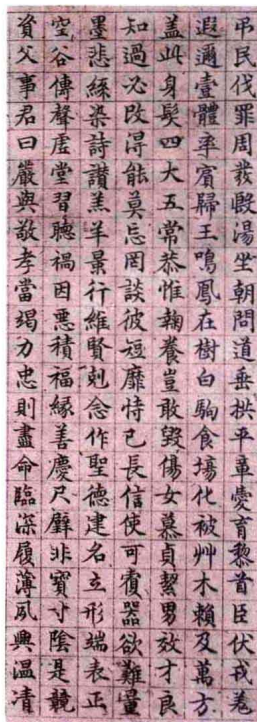 吊民伐罪周發殷湯坐朝問道垂拱平章愛育黎首臣伏戎羌
遐邇壹體率賓歸王鳴鳳在樹白駒食場化被艸木賴及萬方
蓋此身髮四大五常恭惟鞠養豈敢毀傷女慕貞絜男效才良
知過必改得能莫忘罔談彼短靡恃己長信使可覆器欲難量
墨悲絲染詩讚羔羊景行維賢剋念作聖德建名立形端表正
空谷傳聲虛堂習聽禍因惡積福緣善慶尺璧非寶寸陰是競
資父事君曰嚴與敬孝當竭力忠則盡命臨深履薄夙興温凊